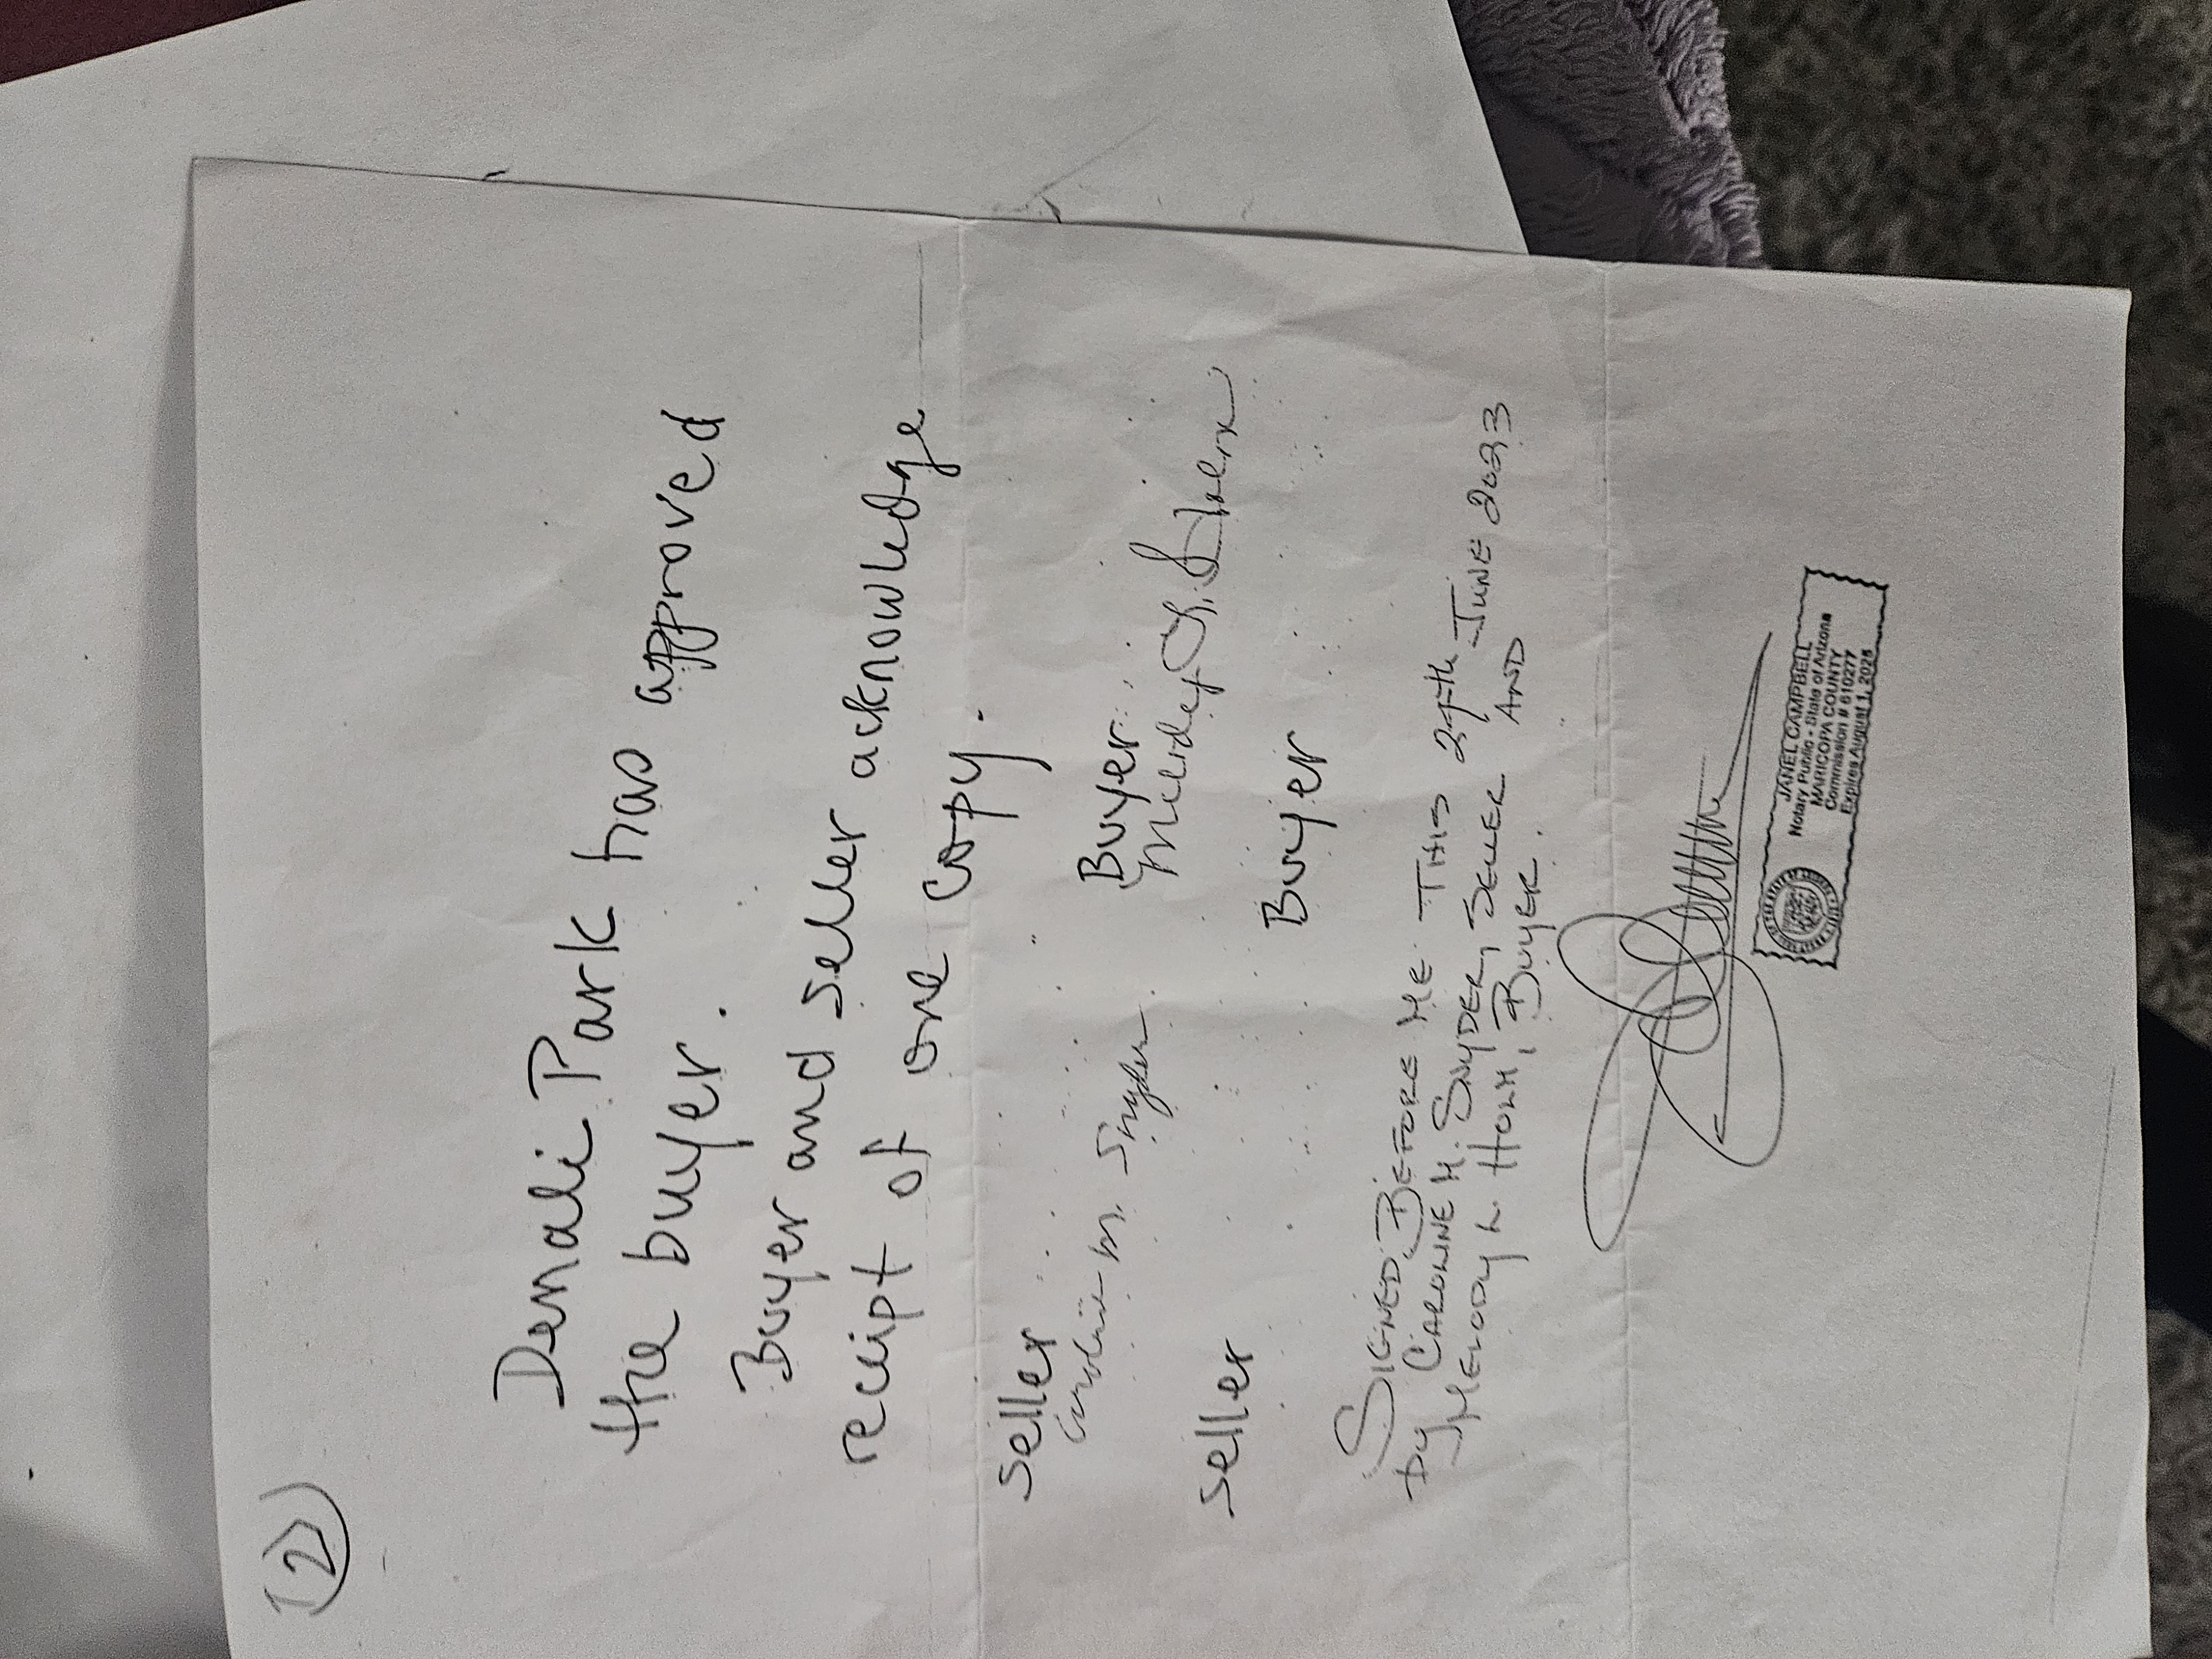 (2)
Denali Park has approved
the buyer.
Buyer and seller acknowledge
receipt of one copy.
Seller Buyer
Caroline M. Snyder
Seller Buyer
SIGNED BEFORE ME THIS JUNE 2023
by CAROLINE M. SNYDER, SELLER AND
MELODY L BUYER.
JANEL CAMPBELL
Notary Public - State of Arizona
MARICOPA COUNTY
Commission # 610277
Expires August 1, 2025